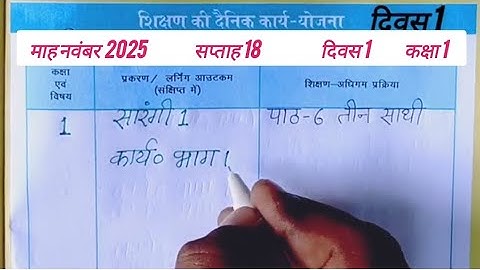 शिक्षण की दैनिक कार्य-योजना
दिवस 1
माह नवंबर 2025 सप्ताह 18 दिवस 1 कक्षा 1
कक्षा एवं विषय
प्रकरण/ लर्निंग आउटकम (संक्षिप्त में)
शिक्षण-अधिगम प्रक्रिया
1 सारंगी 1 पाठ-6 तीन साथी
कार्य० भाग 1